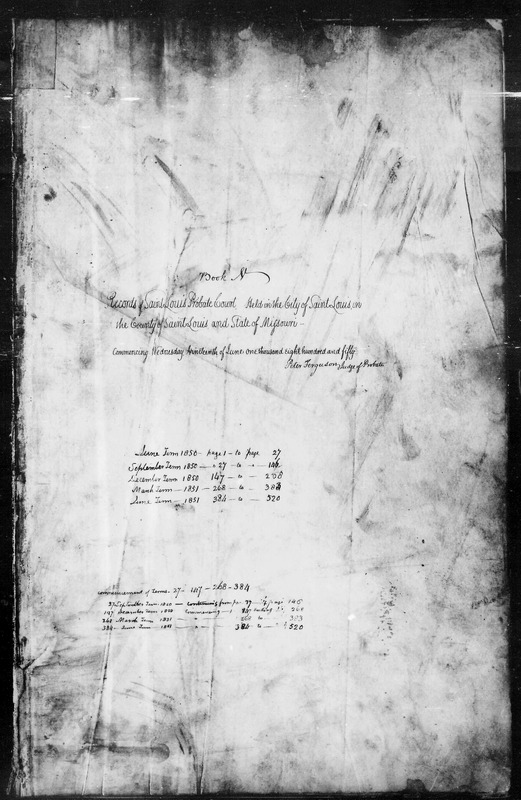 Book N
Records of Saint Louis Probate Court Held in the City of Saint Louis, in
the County of Saint Louis and State of Missouri –
Commencing Wednesday thirteenth of June one thousand eight hundred and fifty
Peter Ferguson Judge of Probate
June Term 1850 – page 1 – to page 27
September Term 1850 — " 27 – to – " – 146
December Term 1850 147 – to – 268
March Term — 1851 – 268 – to – 383
June Term – 1851 384 – to – 520
commencement of Terms. 27 – 147 – 268 – 384
27 September Term 1850 — continuing from pa. 27 – to page 146
147 December Term 1850 commencing – " 147 268
268 March Term 1851 – " 268 to 383
384 – June Term – 1851 — " – 384 to – " 520